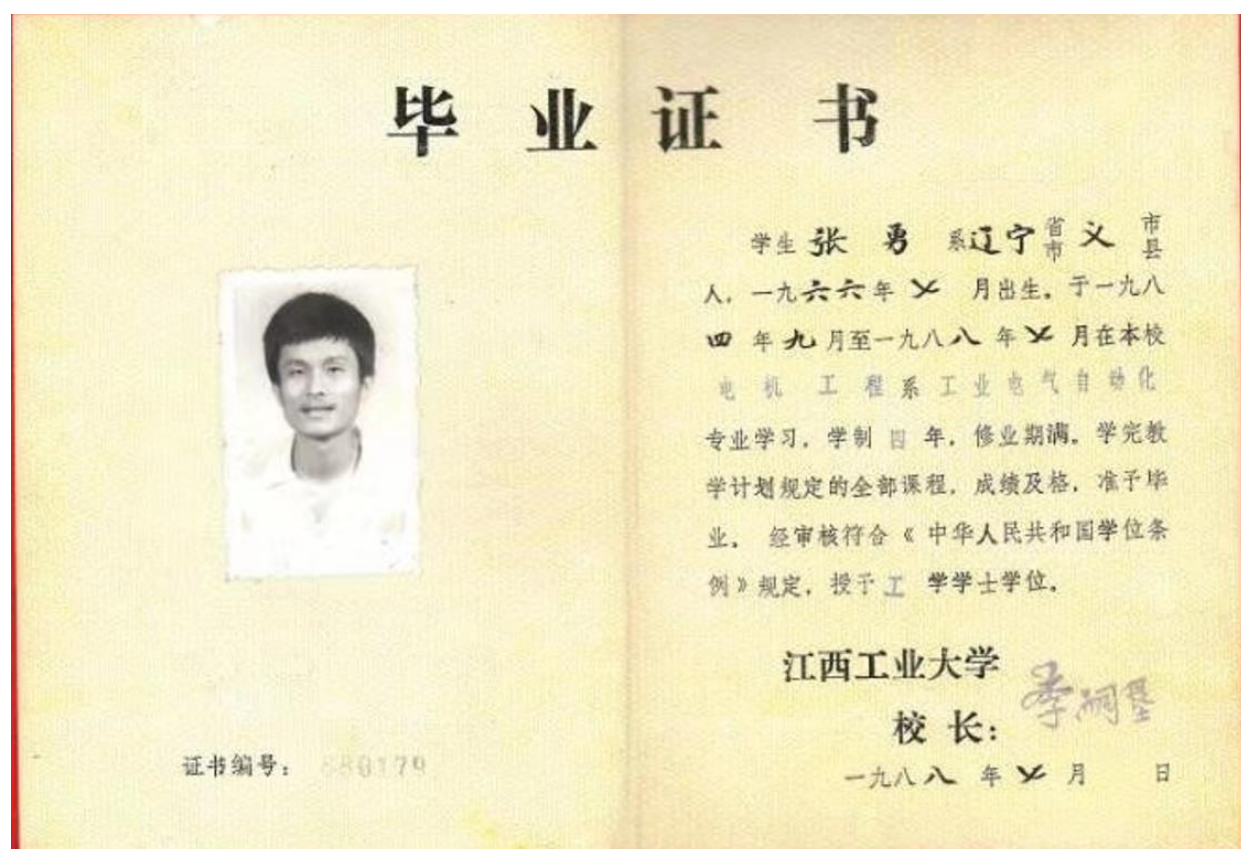 毕业证书
学生 张勇 系辽宁省市义市县
人，一九六六年七月出生。于一九八
四年九月至一九八八年七月在本校
电机工程系工业电气自动化
专业学习，学制四年，修业期满。学完教
学计划规定的全部课程，成绩及格，准予毕
业。经审核符合《中华人民共和国学位条
例》规定，授予工学学士学位。
江西工业大学
校长：
证书编号：880179
一九八八年七月 日